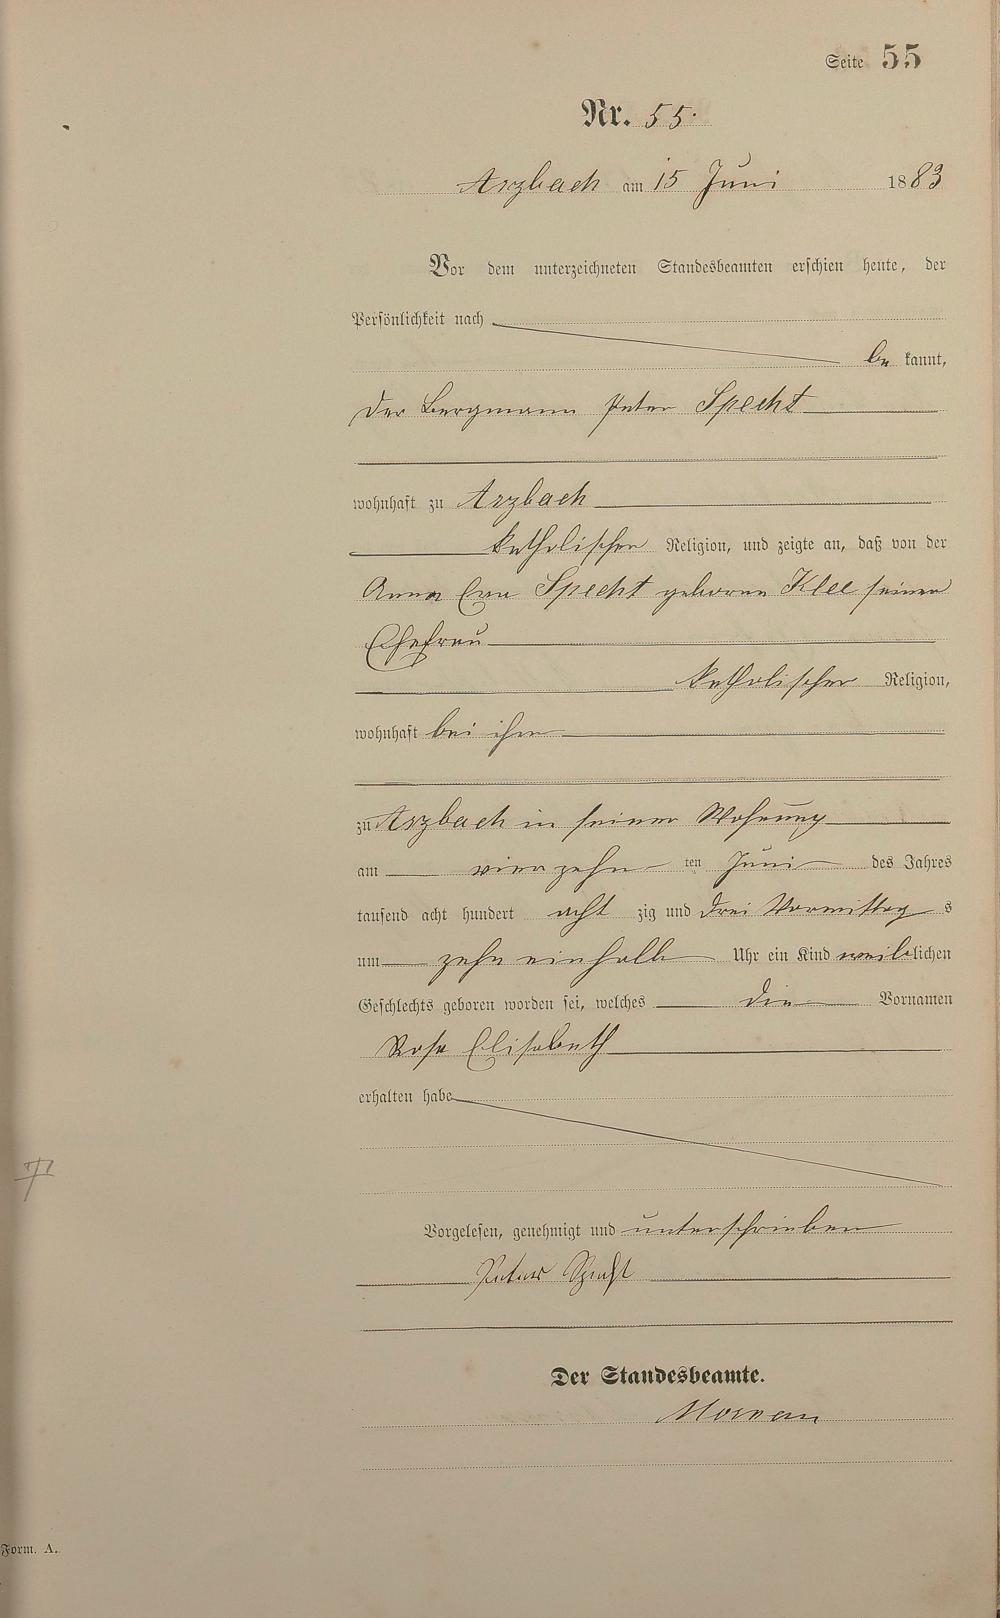 Seite 55
Nr. 55.
Arzbach am 15 Juni 1883
Vor dem unterzeichneten Standesbeamten erschien heute, der
Persönlichkeit nach
be kannt,
der Bergmann Peter Specht
wohnhaft zu Arzbach
katholischer Religion, und zeigte an, daß von der
Anna Eva Specht geborene Klee seiner
Ehefrau
katholischer Religion,
wohnhaft bei ihm
zu Arzbach in seiner Wohnung
am vierzehn ten Juni des Jahres
tausend acht hundert acht zig und drei Vormittag s
um zehn einhalb Uhr ein Kind weiblichen
Geschlechts geboren worden sei, welches die Vornamen
Rosa Elisabeth
erhalten habe
Vorgelesen, genehmigt und unterschrieben
Peter Specht
Der Standesbeamte.
Form. A.